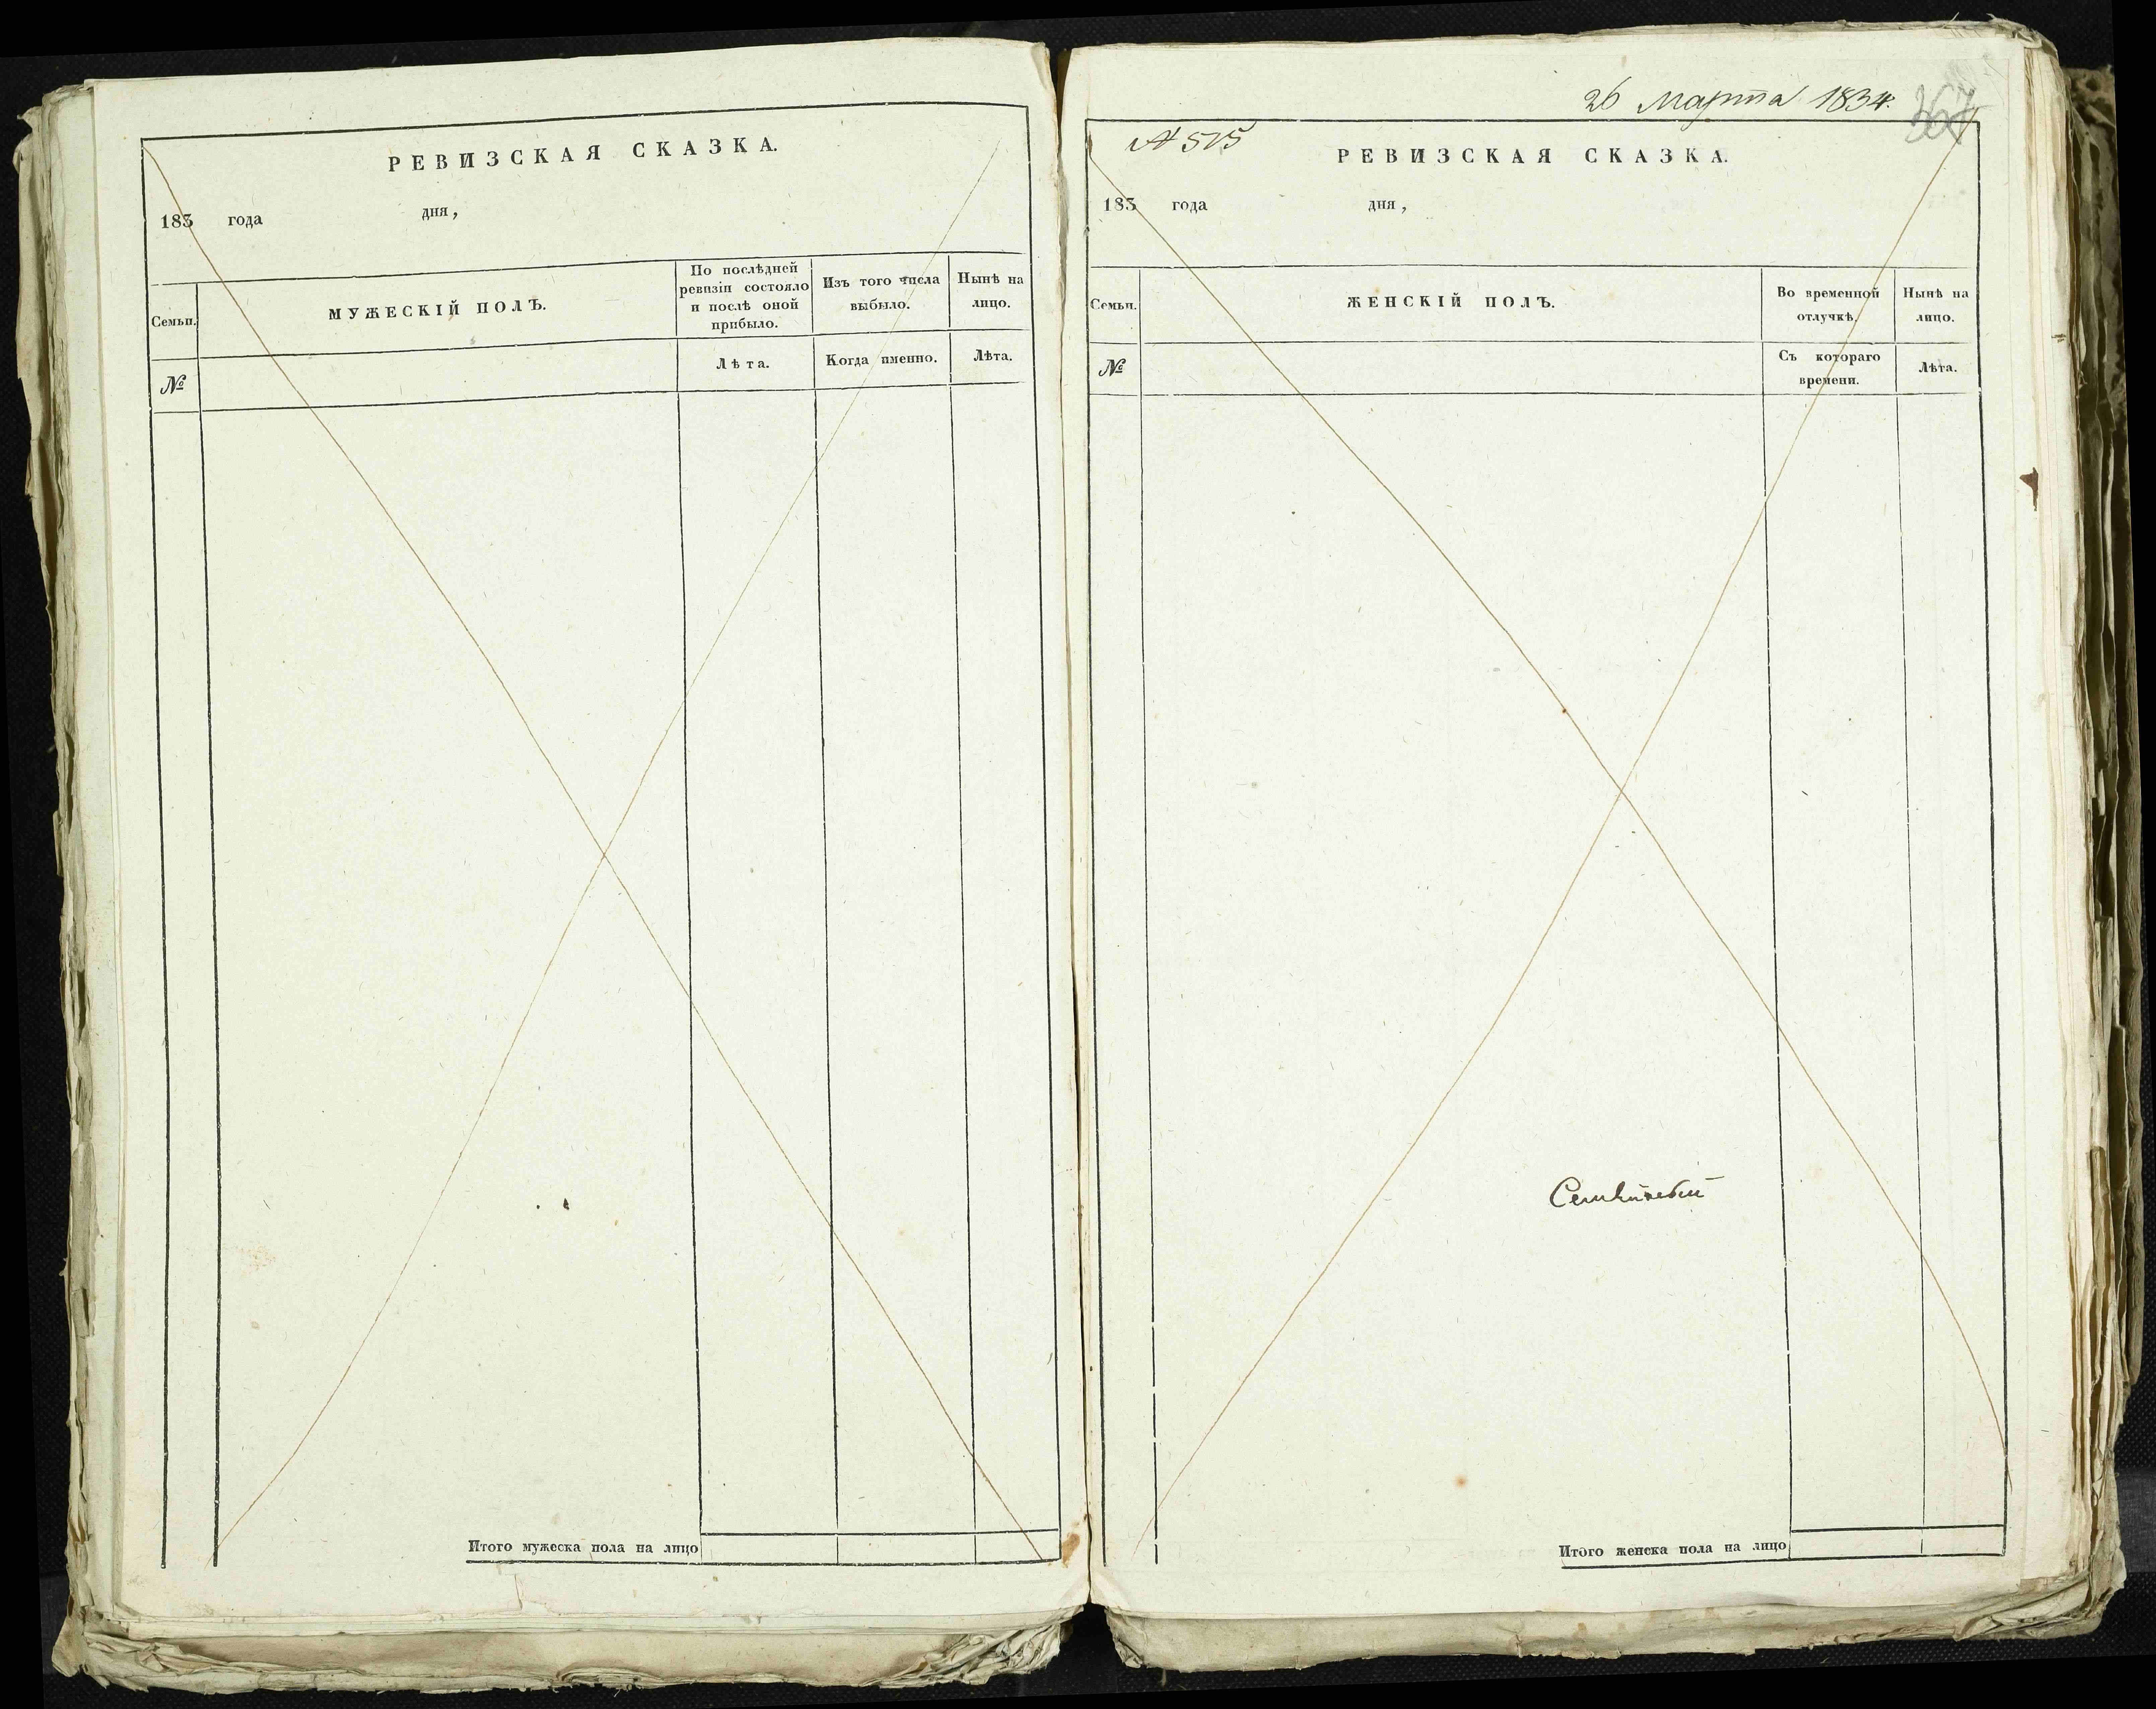 РЕВИЗСКАЯ СКАЗКА.
183 года дня,
Семьи.
МУЖЕСКІЙ ПОЛЪ.
По послѣдней ревизіи состояло и послѣ оной прибыло.
Изъ того числа выбыло.
Нынѣ на лицо.
№
Лѣта.
Когда именно.
Лѣта.
Итого мужеска пола на лицо
26 Марта 1834.
367
№ 515
РЕВИЗСКАЯ СКАЗКА.
183 года дня,
Семьи.
ЖЕНСКІЙ ПОЛЪ.
Во временной отлучкѣ.
Нынѣ на лицо.
№
Съ котораго времени.
Лѣта.
Итого женска пола на лицо